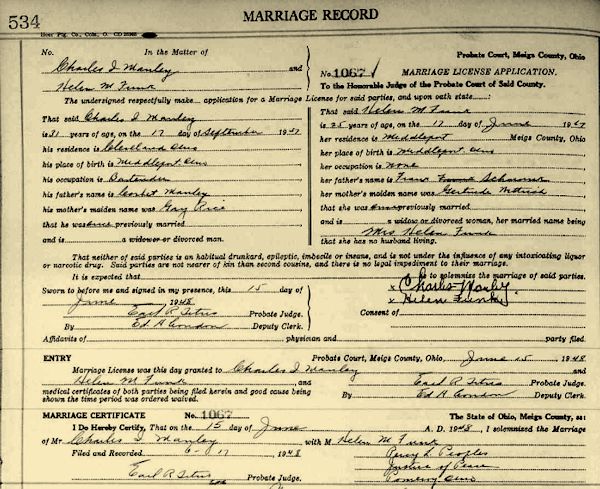 534
MARRIAGE RECORD
No.
In the Matter of
Charles I Manley and
Helen M Funk
The undersigned respectfully make application for a Marriage License for said parties, and upon oath state:
Probate Court, Meigs County, Ohio
No. 1067 MARRIAGE LICENSE APPLICATION.
To the Honorable Judge of the Probate Court of Said County.
That said Charles I Manley
is 31 years of age, on the 17 day of September 1947
his residence is Cleveland Ohio
his place of birth is Middleport Ohio
his occupation is Bartender
his father's name is Corbet Manley
his mother's maiden name was Gay Rice
that he was previously married
and is a widower or divorced man.
That said Helen M Funk
is 25 years of age, on the 17 day of June 1947
her residence is Middleport Meigs County, Ohio
her place of birth is Middleport Ohio
her occupation is None
her father's name is
her mother's maiden name was Gertrude
that she was previously married
and is a widow or divorced woman, her married name being
Mrs Helen Funk
that she has no husband living.
That neither of said parties is an habitual drunkard, epileptic, imbecile or insane, and is not under the influence of any intoxicating liquor
or narcotic drug. Said parties are not nearer of kin than second cousins, and there is no legal impediment to their marriage.
It is expected that is to solemnize the marriage of said parties.
Sworn to before me and signed in my presence, this 15 day of
June 1948
Earl R Titus Probate Judge.
By Ed H Condon Deputy Clerk.
x Charles Manley
x Helen Funk
Consent of
Affidavits of physician and party filed.
ENTRY
Probate Court, Meigs County, Ohio, June 15 1948
Marriage License was this day granted to Charles I Manley and
Helen M Funk, and Earl R Titus Probate Judge.
medical certificates of both parties being filed herein and good cause being By Ed H Condon Deputy Clerk.
shown the time period was ordered waived.
MARRIAGE CERTIFICATE No. 1067 The State of Ohio, Meigs County, ss:
I Do Hereby Certify, That on the 15 day of June A. D. 1948, I solemnized the Marriage
of Mr Charles I Manley with M Helen M Funk
Filed and Recorded 6-17 1948 Percy L Peoples
Justice of Peace
Earl R Titus Probate Judge. Pomeroy Ohio